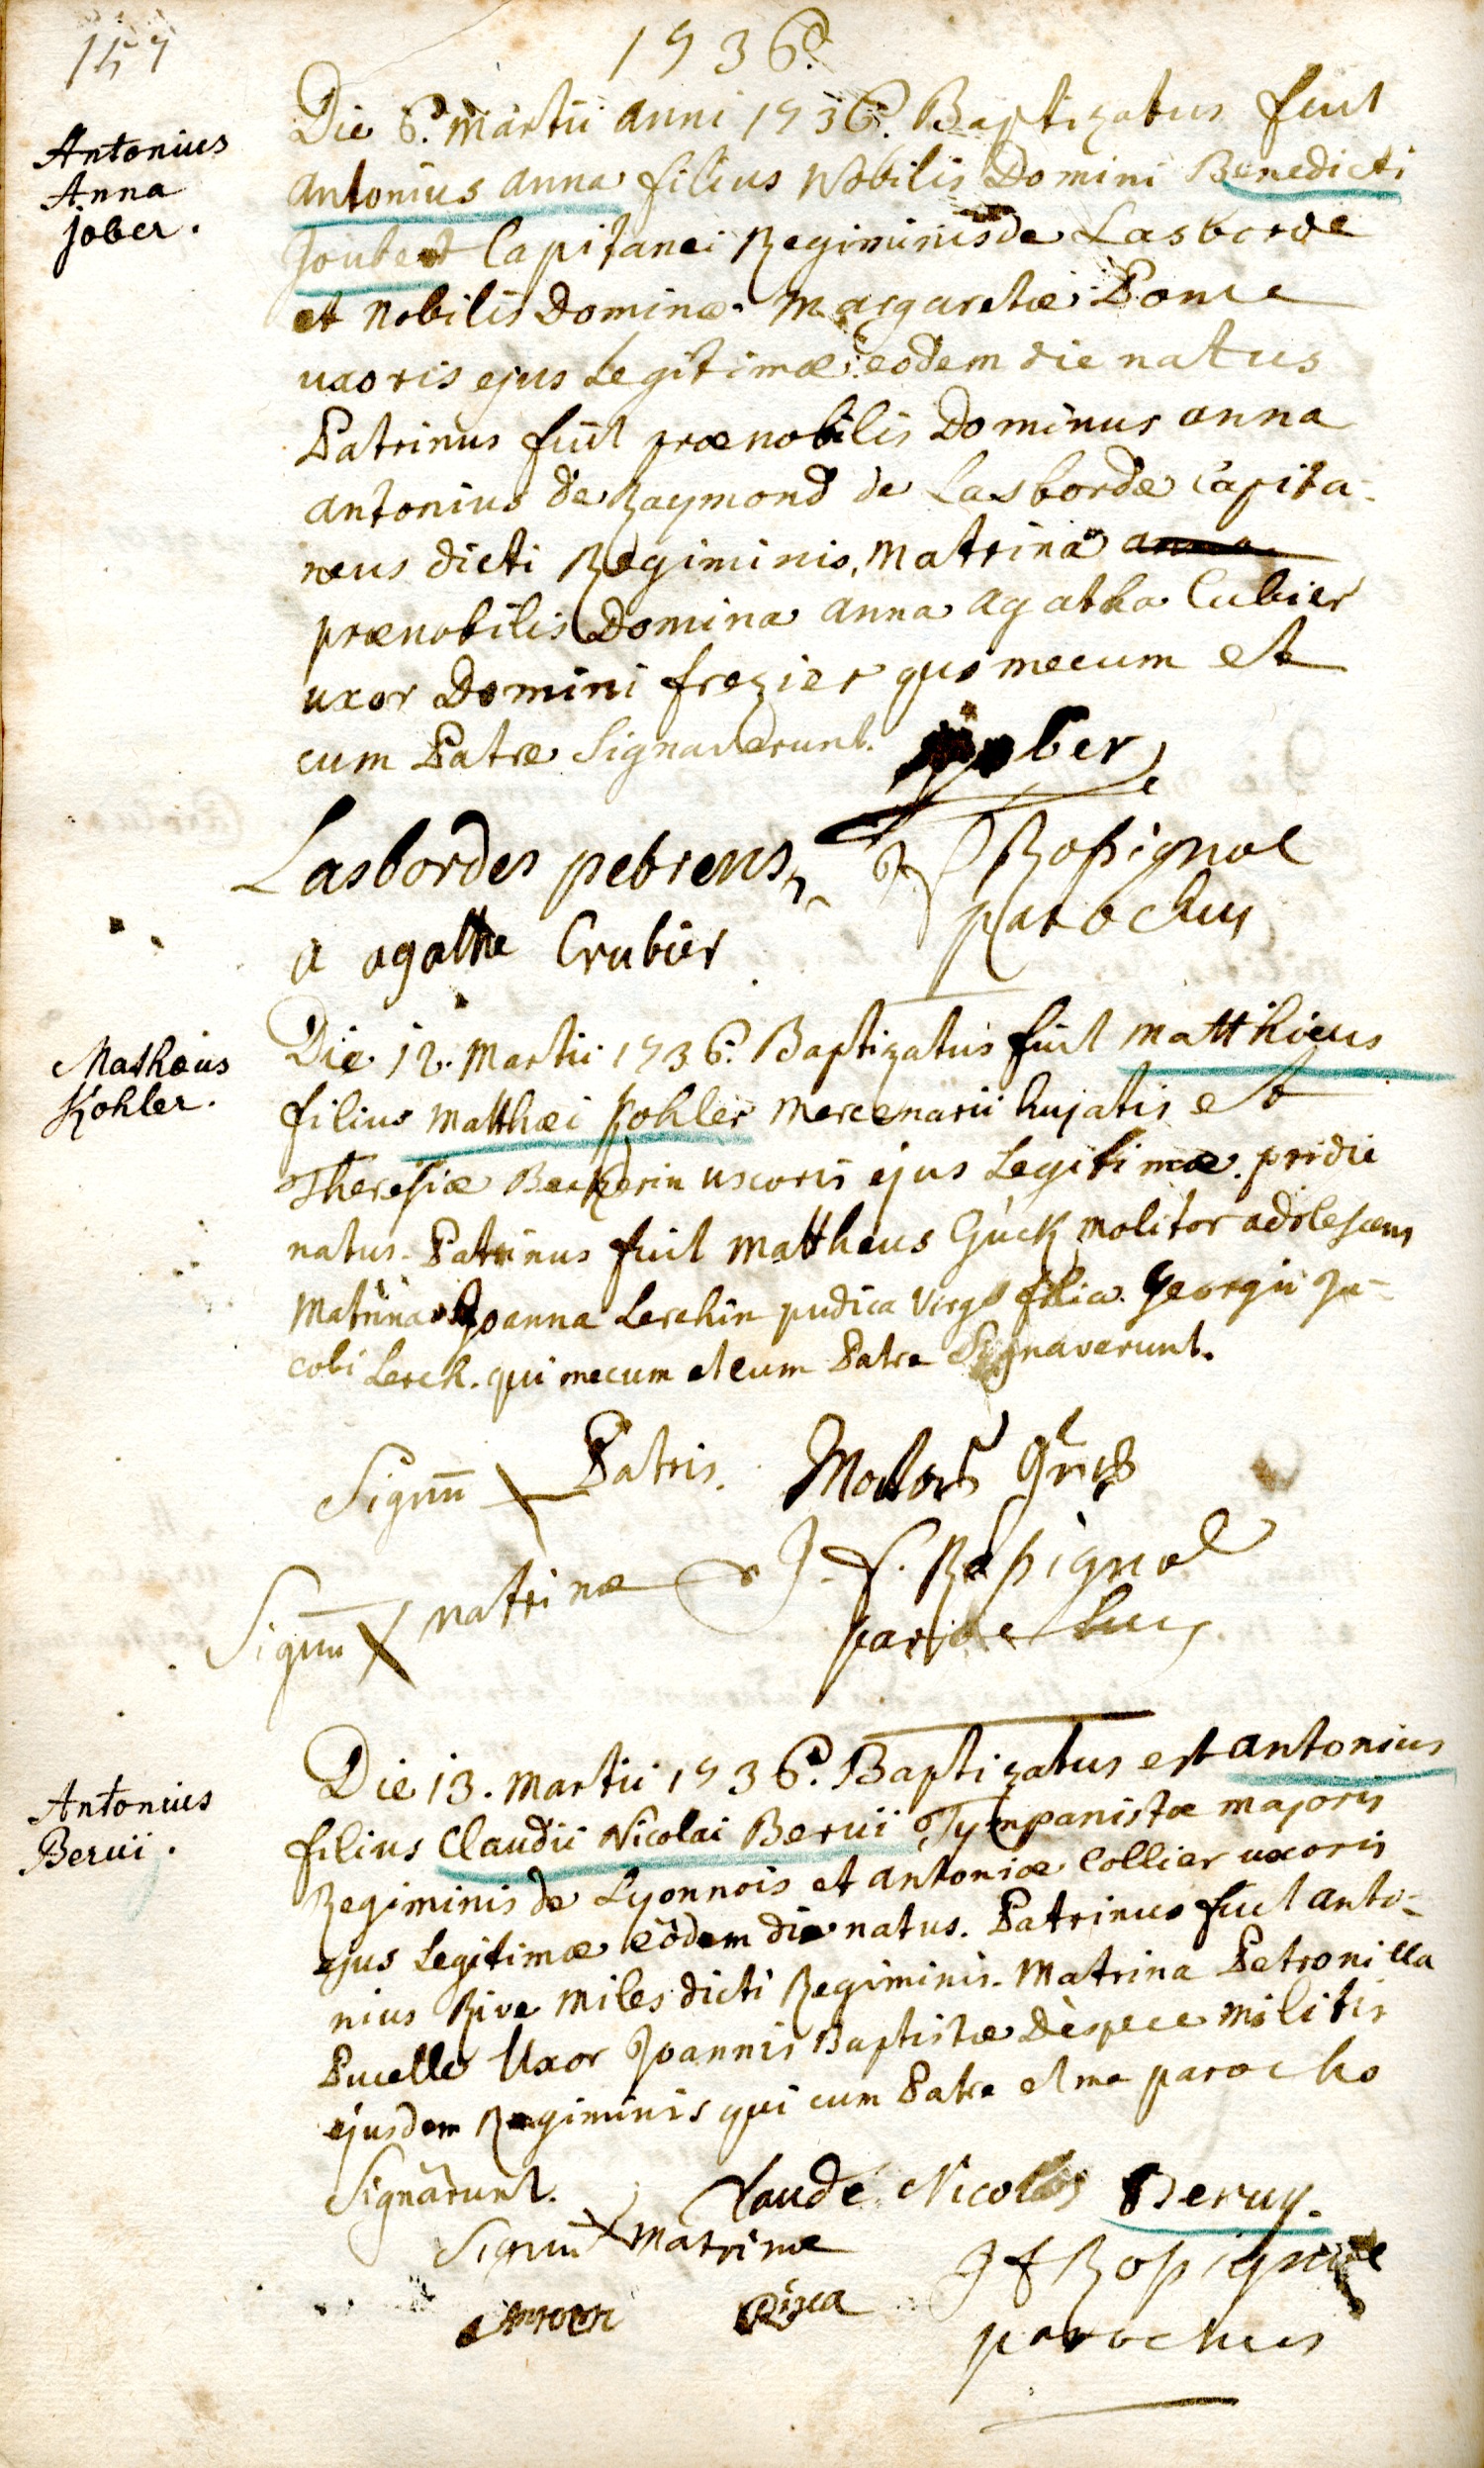 157
1736.
Antonius
Anna
Jober.
Die 6.ª Martii anni 1736. Baptizatus fuit
antonius anna filius Nobilis Domini Benedicti
Joubert Capitanei Regiminis de Lasborde
et Nobilis Dominæ Margaretæ Ponce
uxoris ejus Legitimæ eodem die natus
Patrinus fuit prænobilis Dominus anna
antonius de Raymond de Lasborde Capita-
neus dicti Regiminis, Matrina anna
prænobilis Domina anna agatha Cubier
uxor Domini frezier qui mecum et
cum Patre Signaverunt.
Jober
Lasbordes petrens
J f Rosignol
parochus
a agathe Crubier
Mathæus
Kohler.
Die 12. Martii 1736. Baptizatus fuit matthæus
filius Matthæi Kohler mercenarii hujatis et
Theresiæ Beckerin uxoris ejus Legitimæ. pridie
natus. Patrinus fuit Mattheus Gück molitor adolescens
Matrina Joanna Lerchin pudica Virgo filia Georgii Ja-
cobi Lerch. qui mecum et cum Patre Signaverunt.
Signũ Patris.
Signũ matrinæ
J. f. Rosignol
parochus
Antonius
Berüi.
Die 13. Martii 1736. Baptizatus est antonius
filius Claudii Nicolai Berüi Tympanistæ majoris
Regiminis de Lyonnois et antoniæ Collier uxoris
ejus Legitimæ eodem die natus. Patrinus fuit anto-
nius Rive miles dicti Regiminis. Matrina Petronilla
Pucelle Uxor Joannis Baptistæ Dèspece militis
ejusdem Regiminis qui cum Patre et me parocho
Signarunt.
Claude Nicolas Beruy.
Signũ Matrinæ
J f Rosignol
parochus